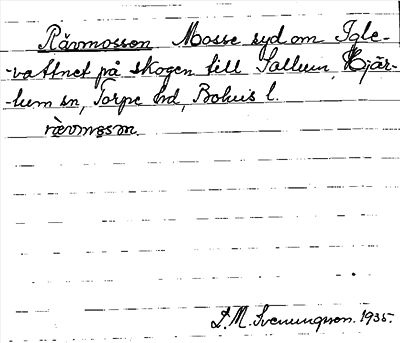 Rävmossen Mosse syd om Igle-
-vattnet på skogen till Sallum, Hjär-
-tum sn, Torpe hd, Bohus l.
rævmåsən.
D. M. Svenungsson. 1935.